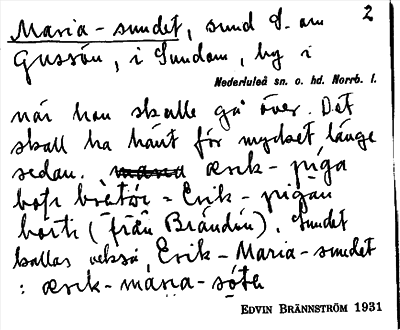 2
Maria-sundet, sund S. om
Gussön, i Sundom, by i
Nederluleå sn. o. hd. Norrb. l.
när hon skulle gå över. Det
skall ha hänt för mycket länge
sedan. ærik-piga
borti - Erik-pigan
borti (från Brändön). Sundet
kallas också Erik-Maria-sundet
: ærik-
EDVIN BRÄNNSTRÖM 1931